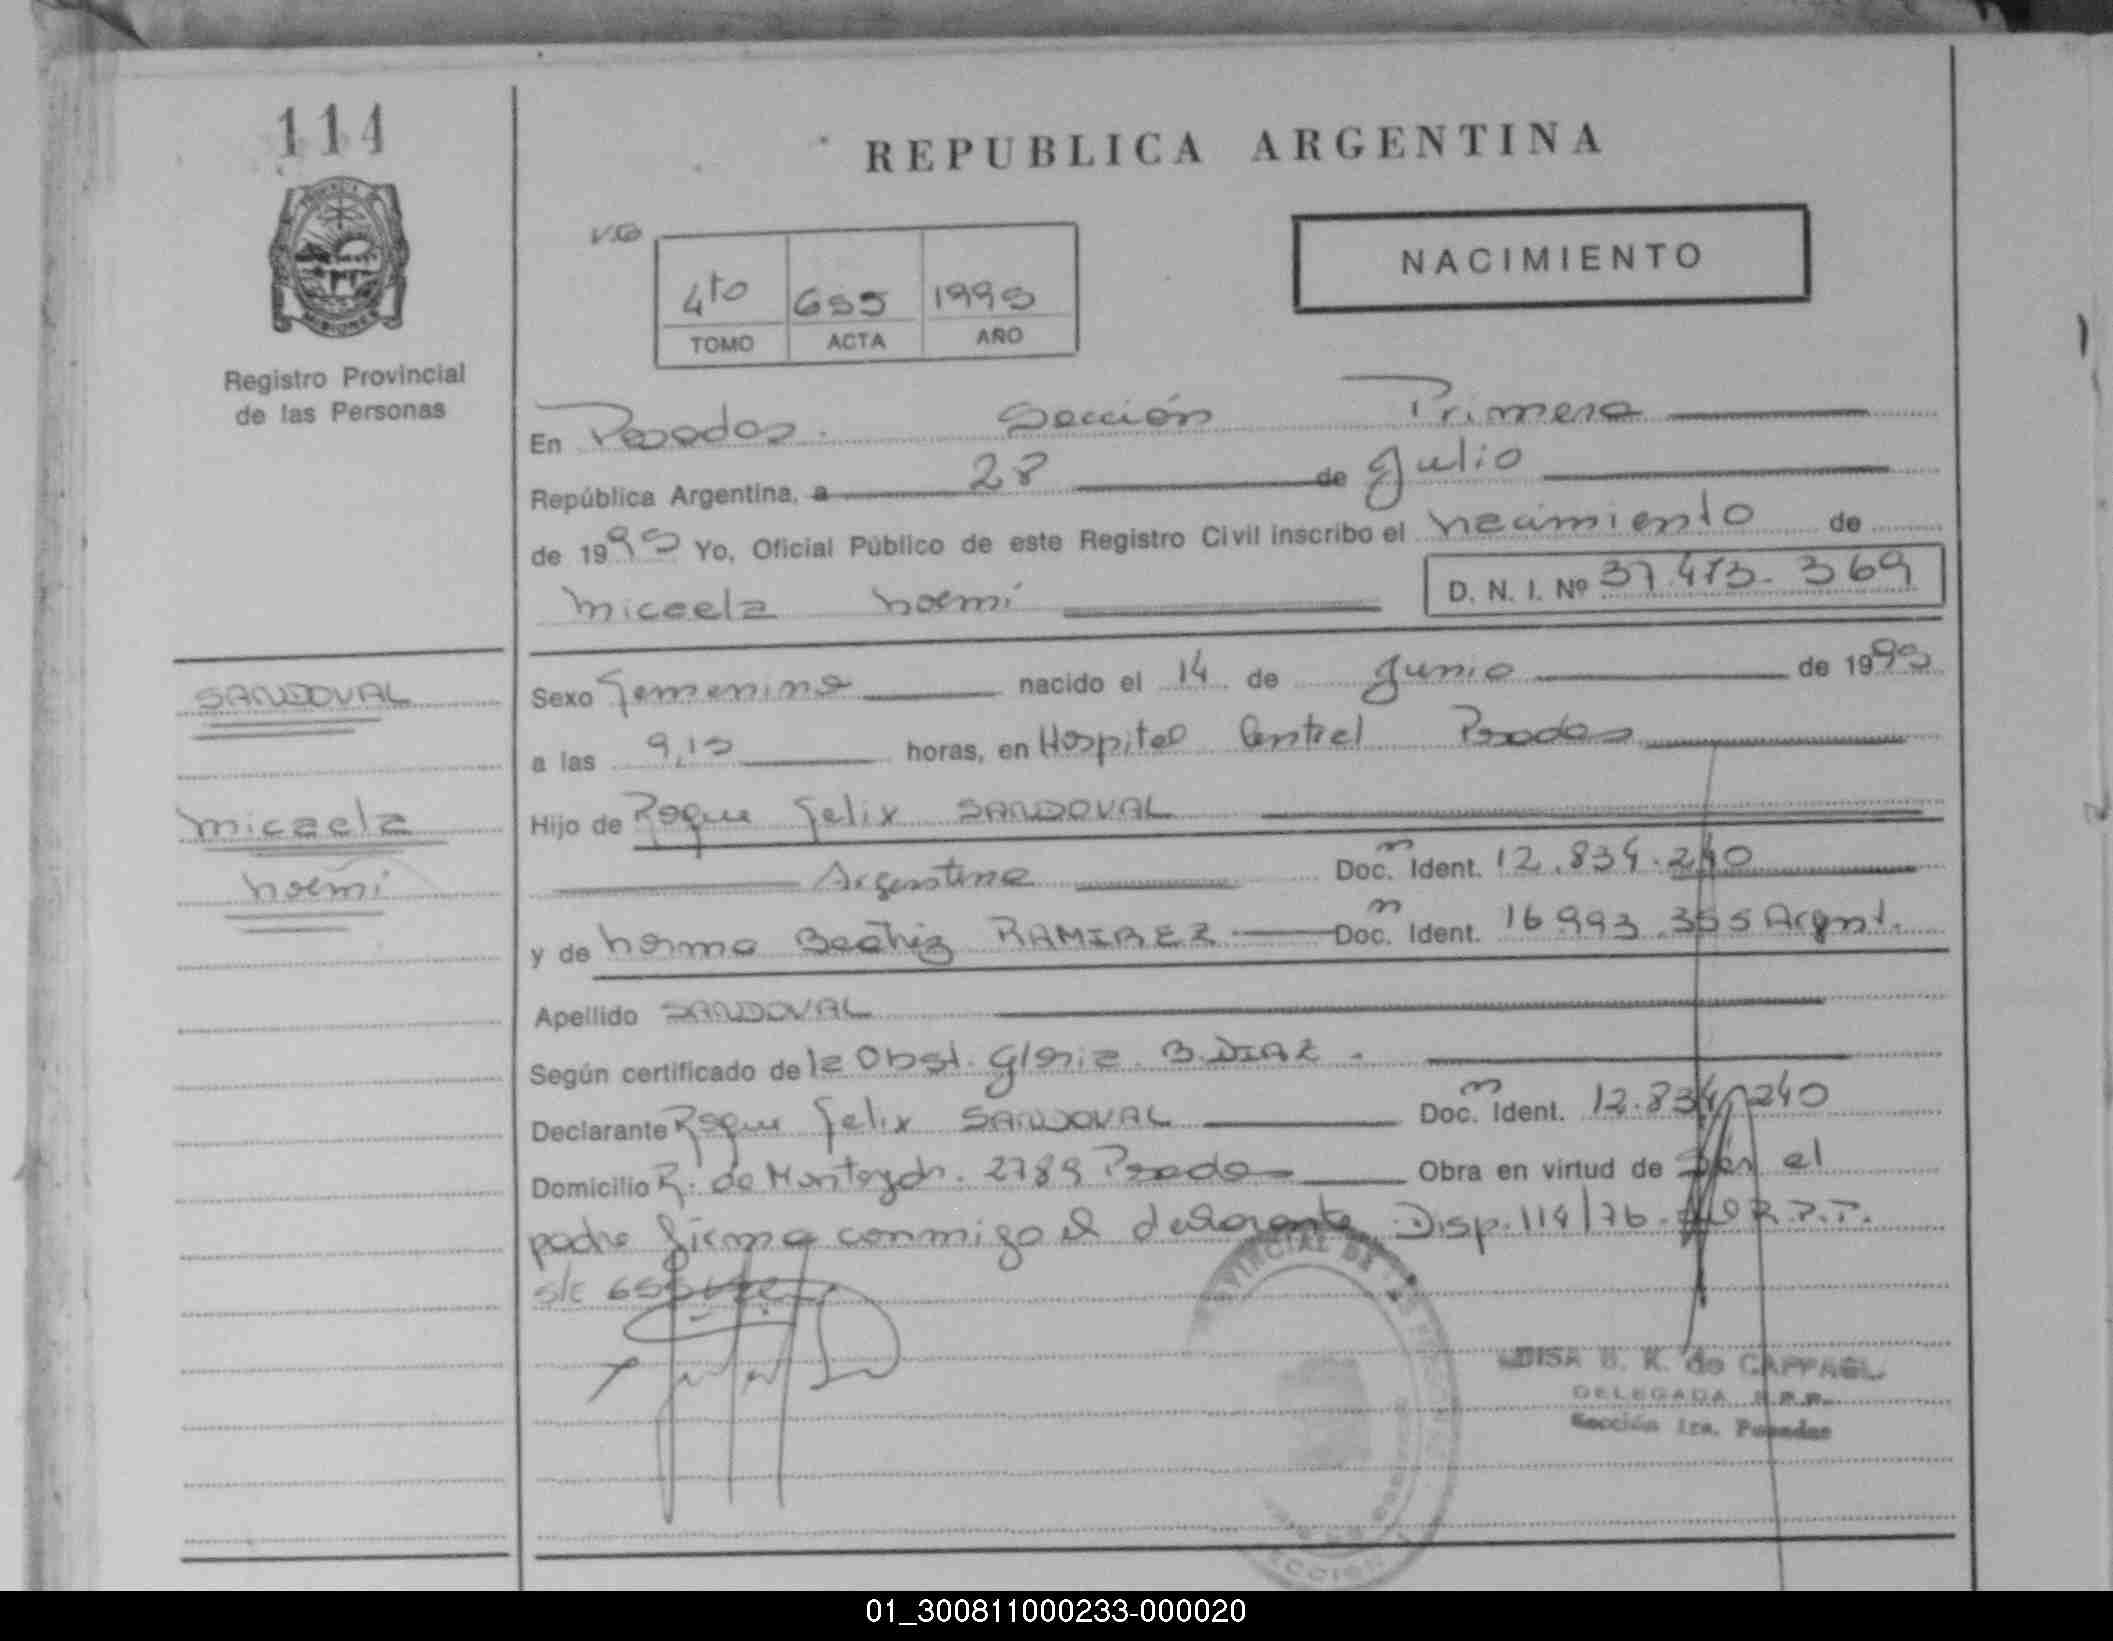 114
REPUBLICA ARGENTINA
NACIMIENTO
4to 655 1995
TOMO ACTA AÑO
Registro Provincial
de las Personas
En Posadas. Sección Primera
República Argentina, a 28 de Julio
de 1995 Yo, Oficial Público de este Registro Civil inscribo el nacimiento de
Micaela Noemí D. N. I. Nº 37.473.369
SANDOVAL
Sexo Femenino nacido el 14 de Junio de 1995
a las 9,15 horas, en Hospital Central Posadas
Micaela
Hijo de Roque Felix SANDOVAL
Noemí
Argentina Doc. Ident. 12.834.240
y de Norma Beatriz RAMIREZ Doc. Ident. 16.993.355 Argent.
Apellido SANDOVAL
Según certificado de la Obst. Gloria B. DIAZ.
Declarante Roque Felix SANDOVAL Doc. Ident. 12.834.240
Domicilio R. de Montoya 2789 Posadas Obra en virtud de Ser el
padre firma conmigo el declarante. Disp. 114/76 R.P.P.
s/c 655
DELEGADA R.P.P.
Sección 1ra. Posadas
01_300811000233-000020